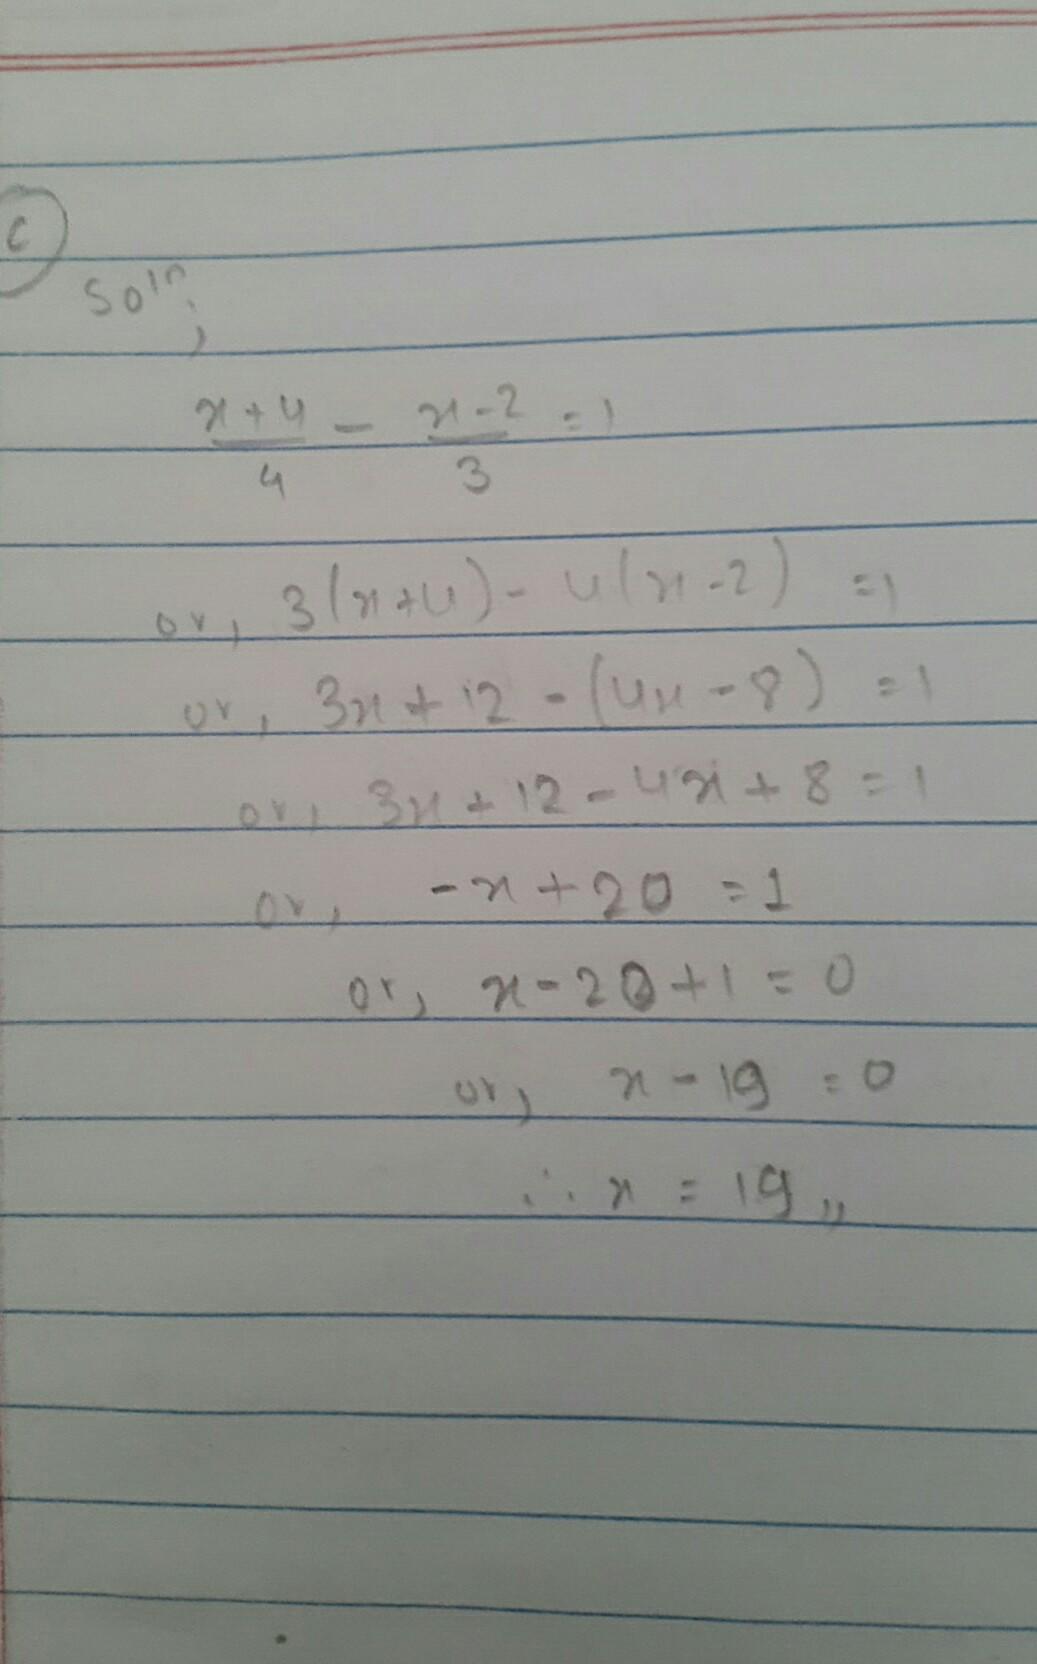 c
Soln;
x+4/4 - x-2/3 =1
or, 3(x+4) - 4(x-2) =1
or, 3x+12 - (4x-8) =1
or, 3x+12-4x+8=1
or, -x+20 =1
or, x-20+1=0
or, x-19 =0
∴ x = 19,,